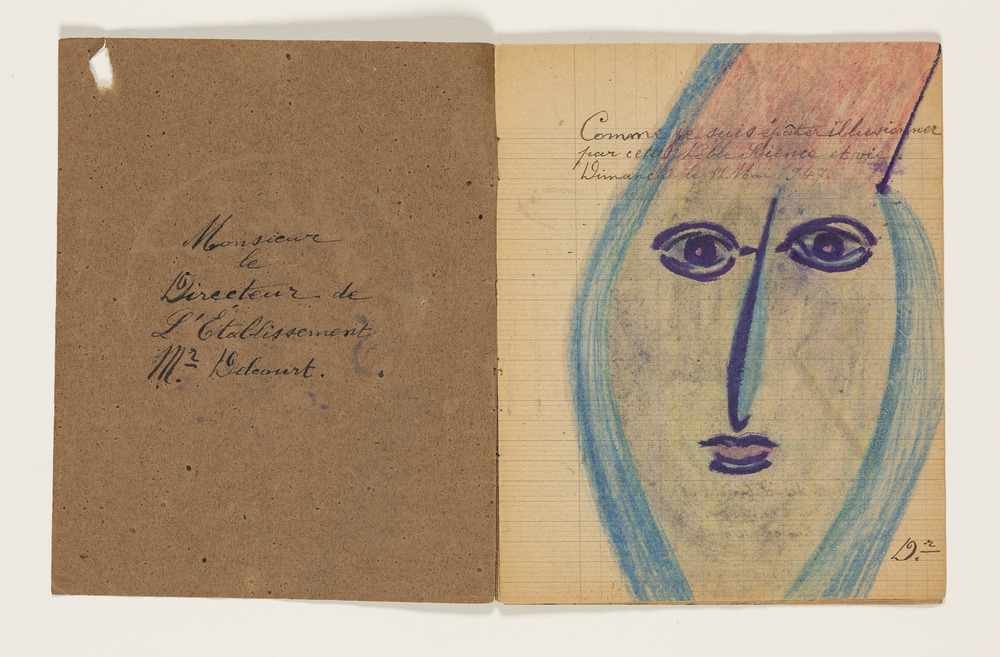 Monsieur
le
Directeur de
L'Établissement
Mr. Delcourt.
Comme je suis épâter illusionner
par cette Science et vis
Dimanche le Mai 194
D.r